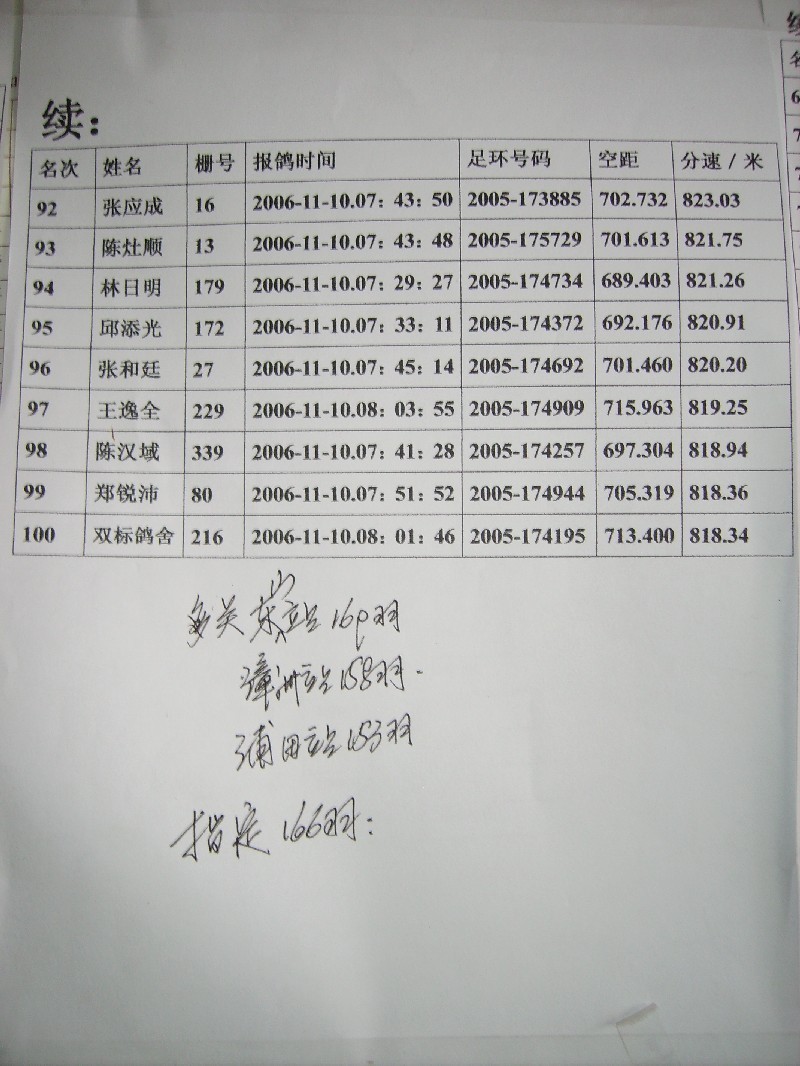 续：
名次 姓名 栅号 报鸽时间 足环号码 空距 分速／米
92 张应成 16 2006-11-10.07：43：50 2005-173885 702.732 823.03
93 陈灶顺 13 2006-11-10.07：43：48 2005-175729 701.613 821.75
94 林日明 179 2006-11-10.07：29：27 2005-174734 689.403 821.26
95 邱添光 172 2006-11-10.07：33：11 2005-174372 692.176 820.91
96 张和廷 27 2006-11-10.07：45：14 2005-174692 701.460 820.20
97 王逸全 229 2006-11-10.08：03：55 2005-174909 715.963 819.25
98 陈汉域 339 2006-11-10.07：41：28 2005-174257 697.304 818.94
99 郑锐沛 80 2006-11-10.07：51：52 2005-174944 705.319 818.36
100 双标鸽舍 216 2006-11-10.08：01：46 2005-174195 713.400 818.34
多关 东山站 羽
漳州站158羽.
浦田站153羽
指定166羽：